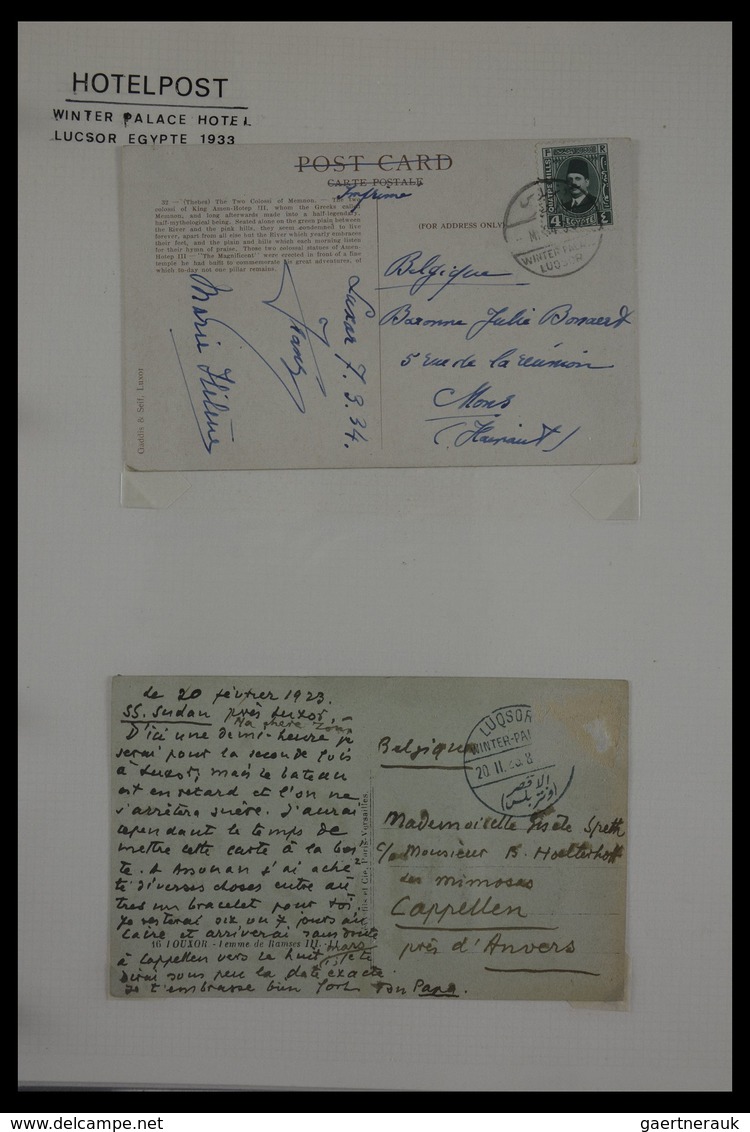 HOTELPOST
WINTER PALACE HOTEL
LUCSOR EGYPTE 1933
POST CARD
CARTE POSTALE
Imprimé
32 — (Thebes) The Two Colossi of Memnon. — The two
colossi of King Amen-Hotep III, whom the Greeks called
Memnon, and long afterwards made into a half-legendary,
half-mythological being. Seated alone on the green plain between
the River and the pink hills, they seem condemned to live
forever, apart from all else but the River which yearly embraces
their feet, and the plain and hills which each morning listen
for their hymn of praise. These two colossal statues of Amen-
Hotep III — "The Magnificent" were erected in front of a fine
temple he had built to commemorate his great adventures, of
which to-day not one pillar remains.
(FOR ADDRESS ONLY)
POSTES
4
EGYPTE
WINTER PALACE
LUQSOR
Gaddis & Seif, Luxor
Marie Hélène
Luxor 7.3.34.
Belgique
Baronne Julie Bonaert
5 rue de la réunion
Mons
(Hainaut)
Le 20 février 1923.
SS. Sudan près Luxor,
Ma chère
D'ici une demi-heure je
serai pour la seconde fois
à Luxor, mais le bateau
est en retard et l'on ne
s'arrêtera guère. J'aurai
cependant le temps de
mettre cette carte à la boî-
te. A Assouan j'ai ache-
té diverses choses entre au-
tres un bracelet pour toi.
Je resterai six ou 7 jours au
Caire et arriverai sans doute
16 LOUXOR - Temme de Ramses III
à Cappellen vers le huit mars je te
dirai sous peu la date exacte.
Je t'embrasse bien fort Ton Papa.
LUQSOR
WINTER-PAL
20.II.
الاقصر
(ونتر بلس)
Belgique
Mademoiselle Gisèle Speth
c/o Monsieur B. Hoelterhoff
les mimosas
Cappellen
près d'Anvers
fils et Cie, Paris-Versailles.
gaertnerauk @ delcampe.net